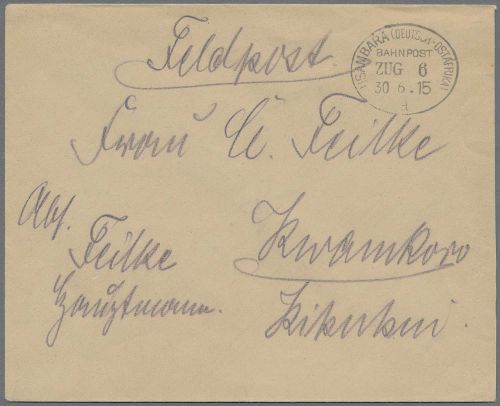 Feldpost.
USAMBARA (DEUTSCH-OSTAFRIKA)
BAHNPOST
ZUG 6
30 6.15
a
Frau E. Feilke
Abs.
Feilke
Hauptmann.
Kwamkoro
Kihuhui.